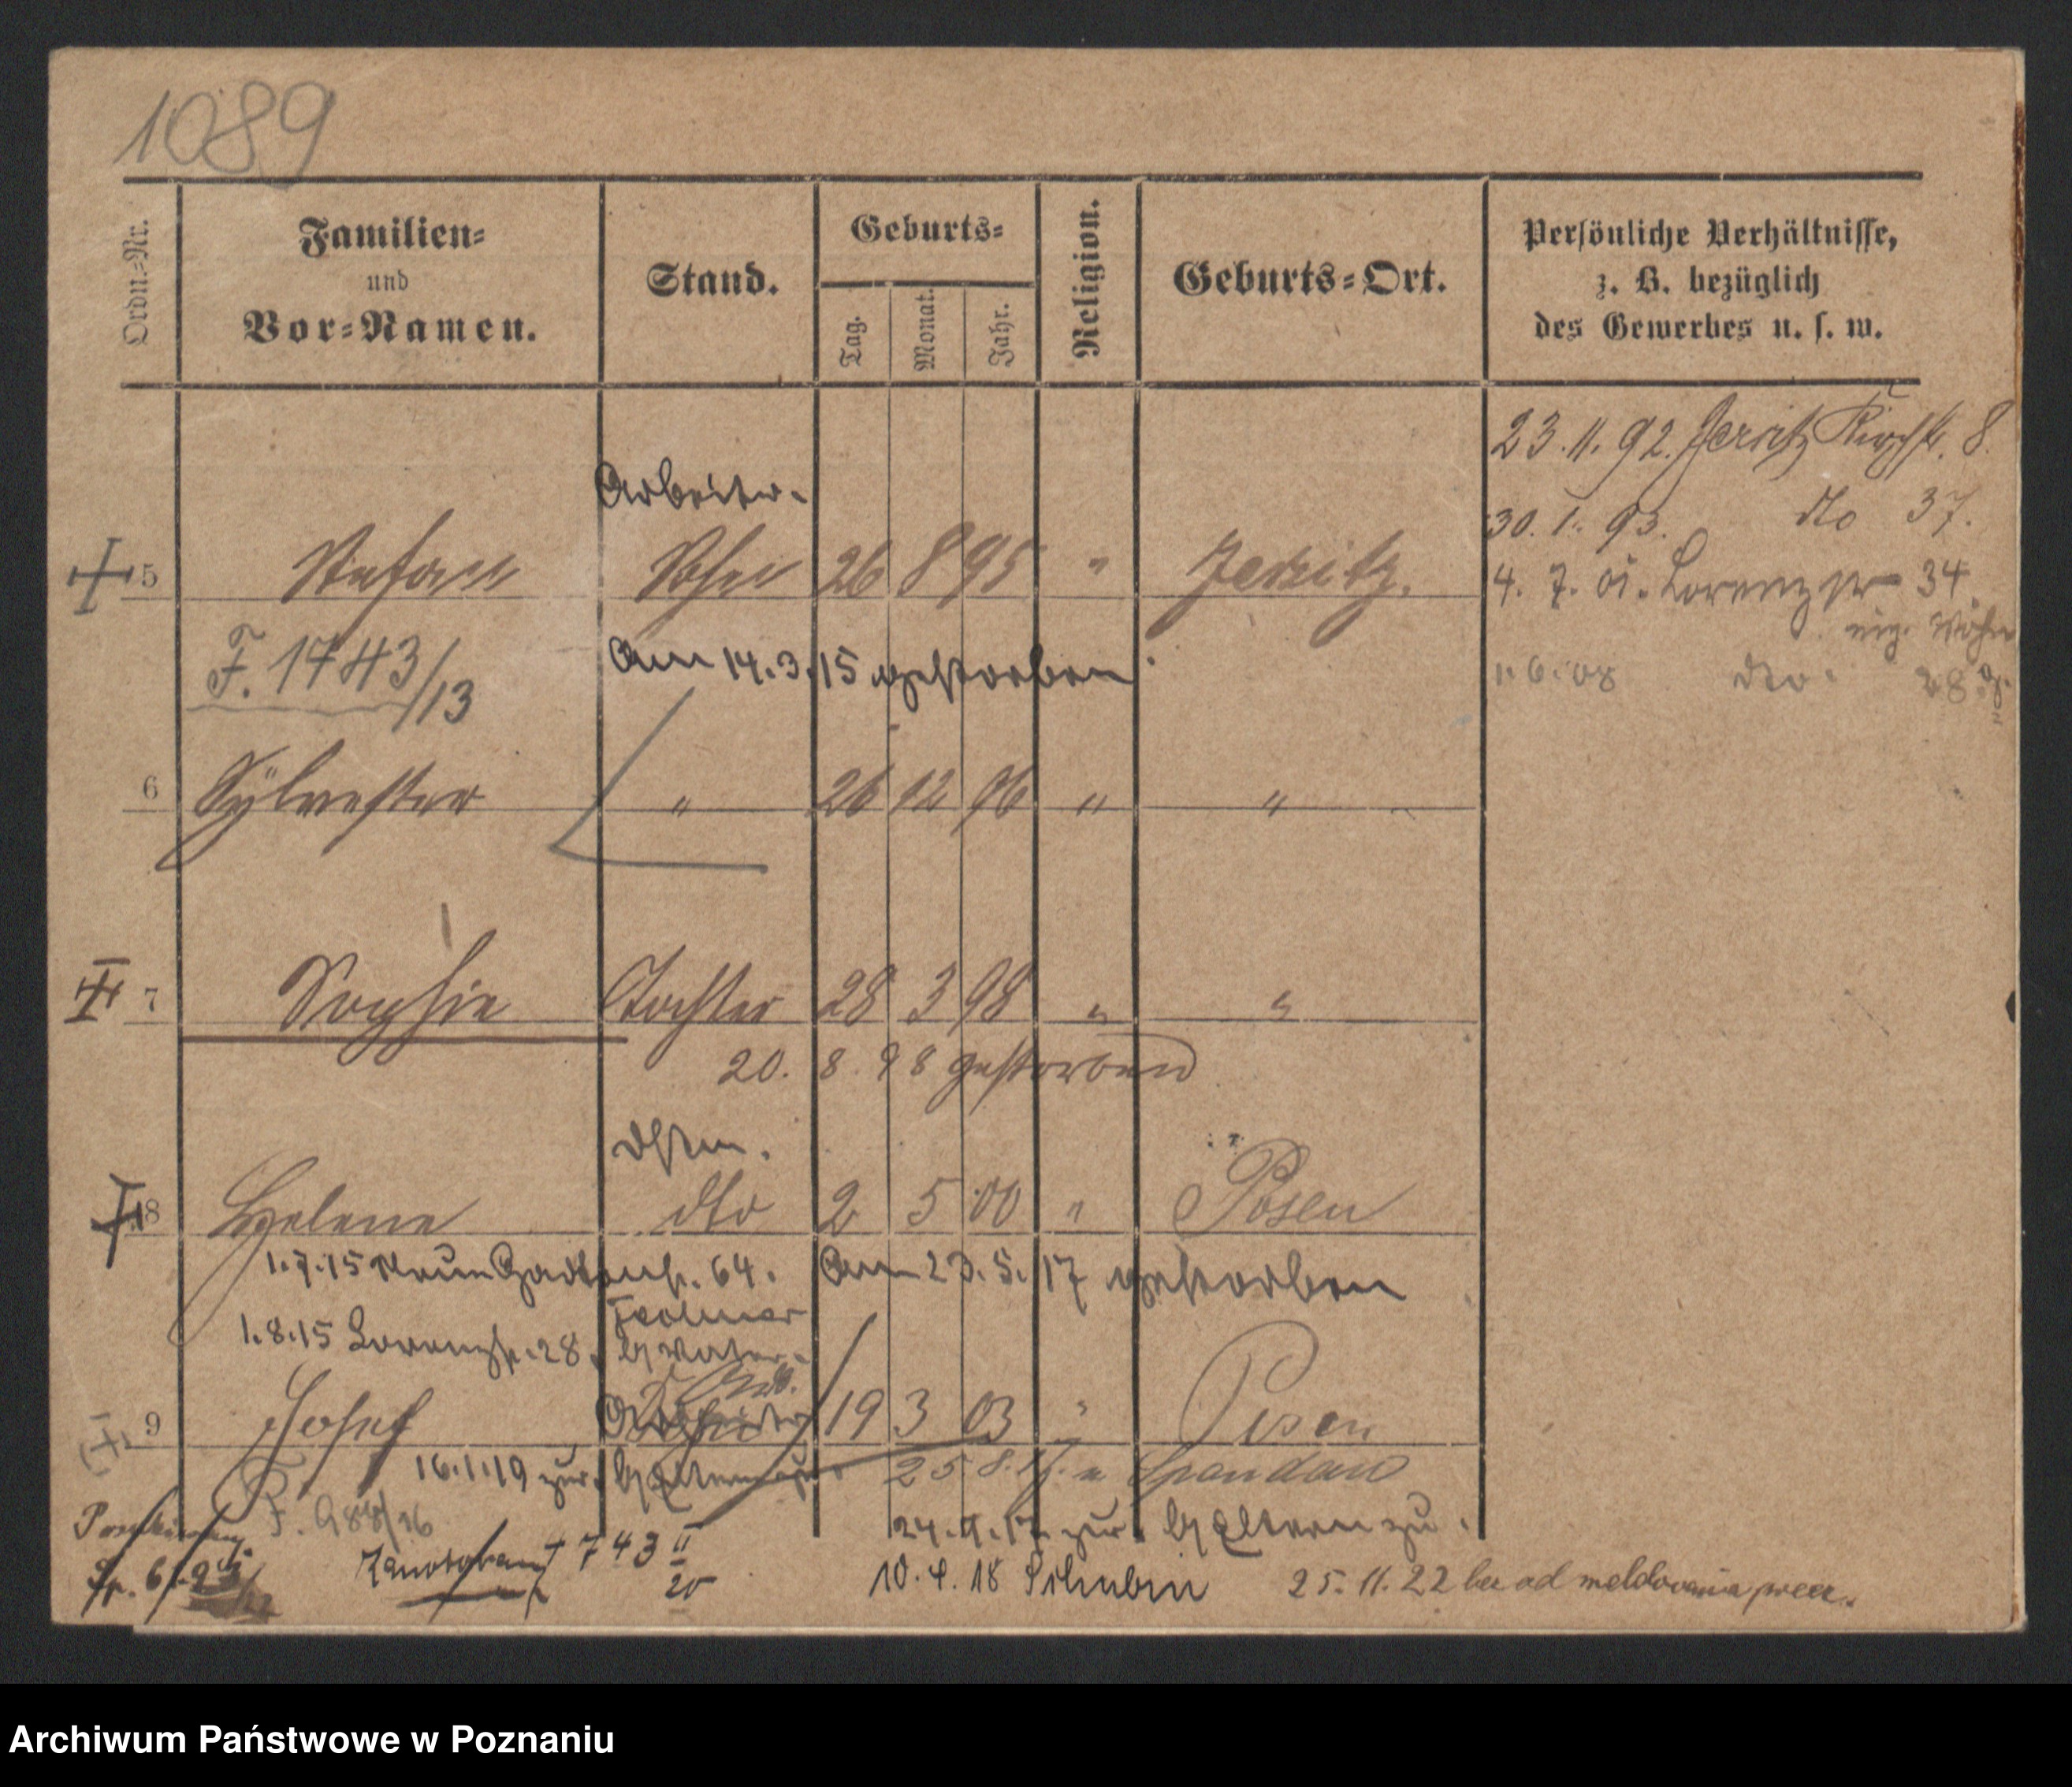 1089
Ordn.-Nr.
Familien-
und
Vor-Namen.
Stand.
Geburts-
Tag.
Monat.
Jahr.
Religion.
Geburts-Ort.
Persönliche Verhältnisse,
z. B. bezüglich
des Gewerbes u. s. w.
23.11.92. Jersitz Kirchstr. 8.
30.1.93. dto 37.
4.7.01. Lorenzstr 34
eig. Wohn
1.6.08 dto. 28
Arbeiter.
5 Stefan Sohn 26 8 95 " Jersitz.
F. 1743/13
Am 14.3.15 gestorben.
6 Sylvester " 26 12 96 " "
7 Sophie Tochter 28 3 98 " "
20. 8. 98 gestorben
8 Helene dto 2 5 00 " Posen
1.7.15 Neue Gartenstr. 64. Am 23.5.17 gestorben
1.8.15 Lorenzstr. 28.
9 Josef Arbeiter 19 3 03 " Posen
16.1.19 zur. Eltern 25.8.17. n Spandau
F. 988/16
24.9.17 zur. Eltern zu.
743 II/20
10.4.18 Schubin
25.11.22 bez od meldowania
Archiwum Państwowe w Poznaniu